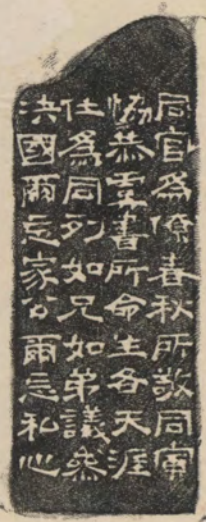 同官為僚春秋所敬同寅
恊恭虞書所命生各天涯
仕為同列如兄如弟議叅
決國爾忘家公爾忘私心